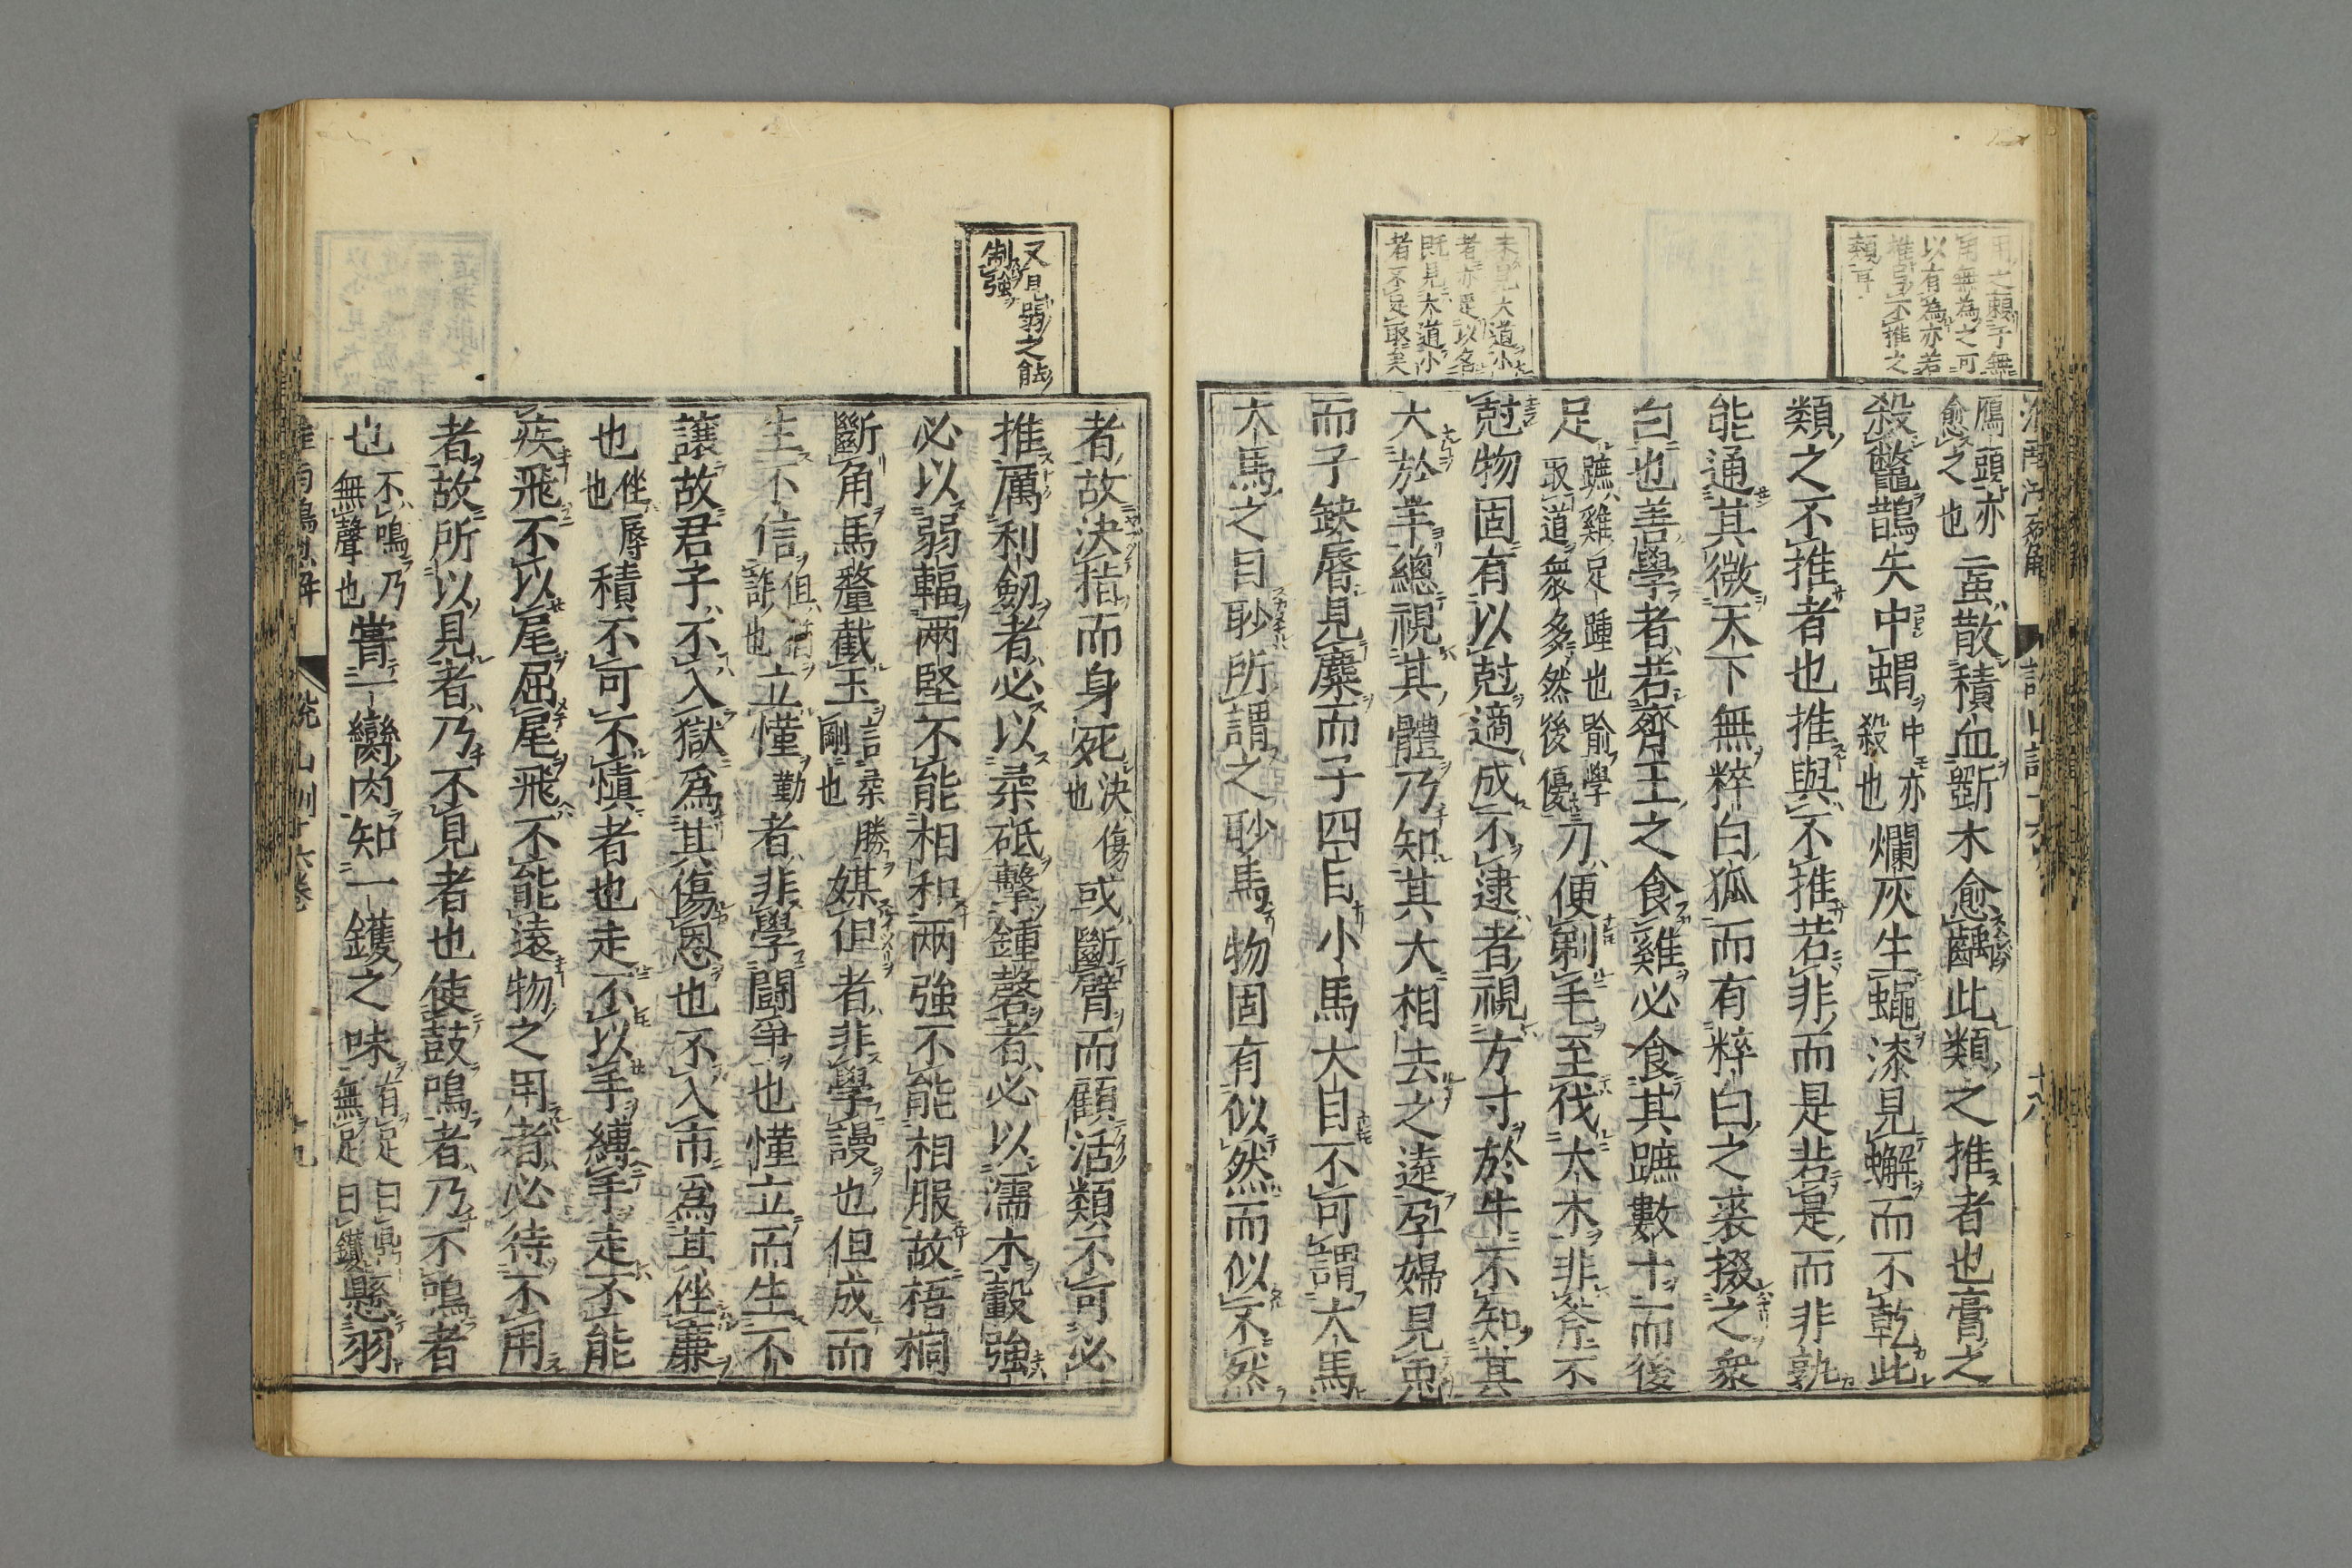 用之賴乎無
用無為之可
以有為亦若
推與不推之
類耳
未見大道小
者亦足以名
既見大道小
者不足取矣
鴈頭亦愈之也䖟散積血斵木愈齲此類之推者也膏之
殺鼈鵲矢中蝟中亦殺也爛灰生蠅漆見蠏而不乾此
類之不推者也推與不推若非而是若是而非孰
能通其微天下無粹白狐而有粹白之裘掇之衆
白也善學者若齊王之食雞必食其蹠數十而後
足蹠雞足踵也喩學取道衆多然後優刀便剃毛至伐大木非斧不
尅物固有以尅適成不逮者視方寸於牛不知其
大於羊總視其體乃知其大相去之遠孕婦見兎
而子缺唇見麋而子四目小馬大目不可謂大馬
大馬之目眇所謂之眇馬物固有似然而似不然
又見弱之能
制強
者故決指而身死決傷也或斷臂而顧活類不可必
推厲利劔者必以柔砥擊鍾磬者必以濡木轂強
必以弱輻兩堅不能相和兩強不能相服故梧桐
斷角馬氂截玉言柔勝剛也媒但者非學謾也但成而
生不信但詐也立慬勤者非學鬪爭也慬立而生不
讓故君子不入獄為其傷恩也不入市為其侳廉
也侳辱也積不可不慎者也走不以手縛手走不能
疾飛不以尾屈尾飛不能遠物之用者必待不用
者故所以見者乃不見者也使鼓鳴者乃不鳴者
也不鳴乃無聲也嘗一臠肉知一鑊之味有足曰鼎無足曰鑊懸羽